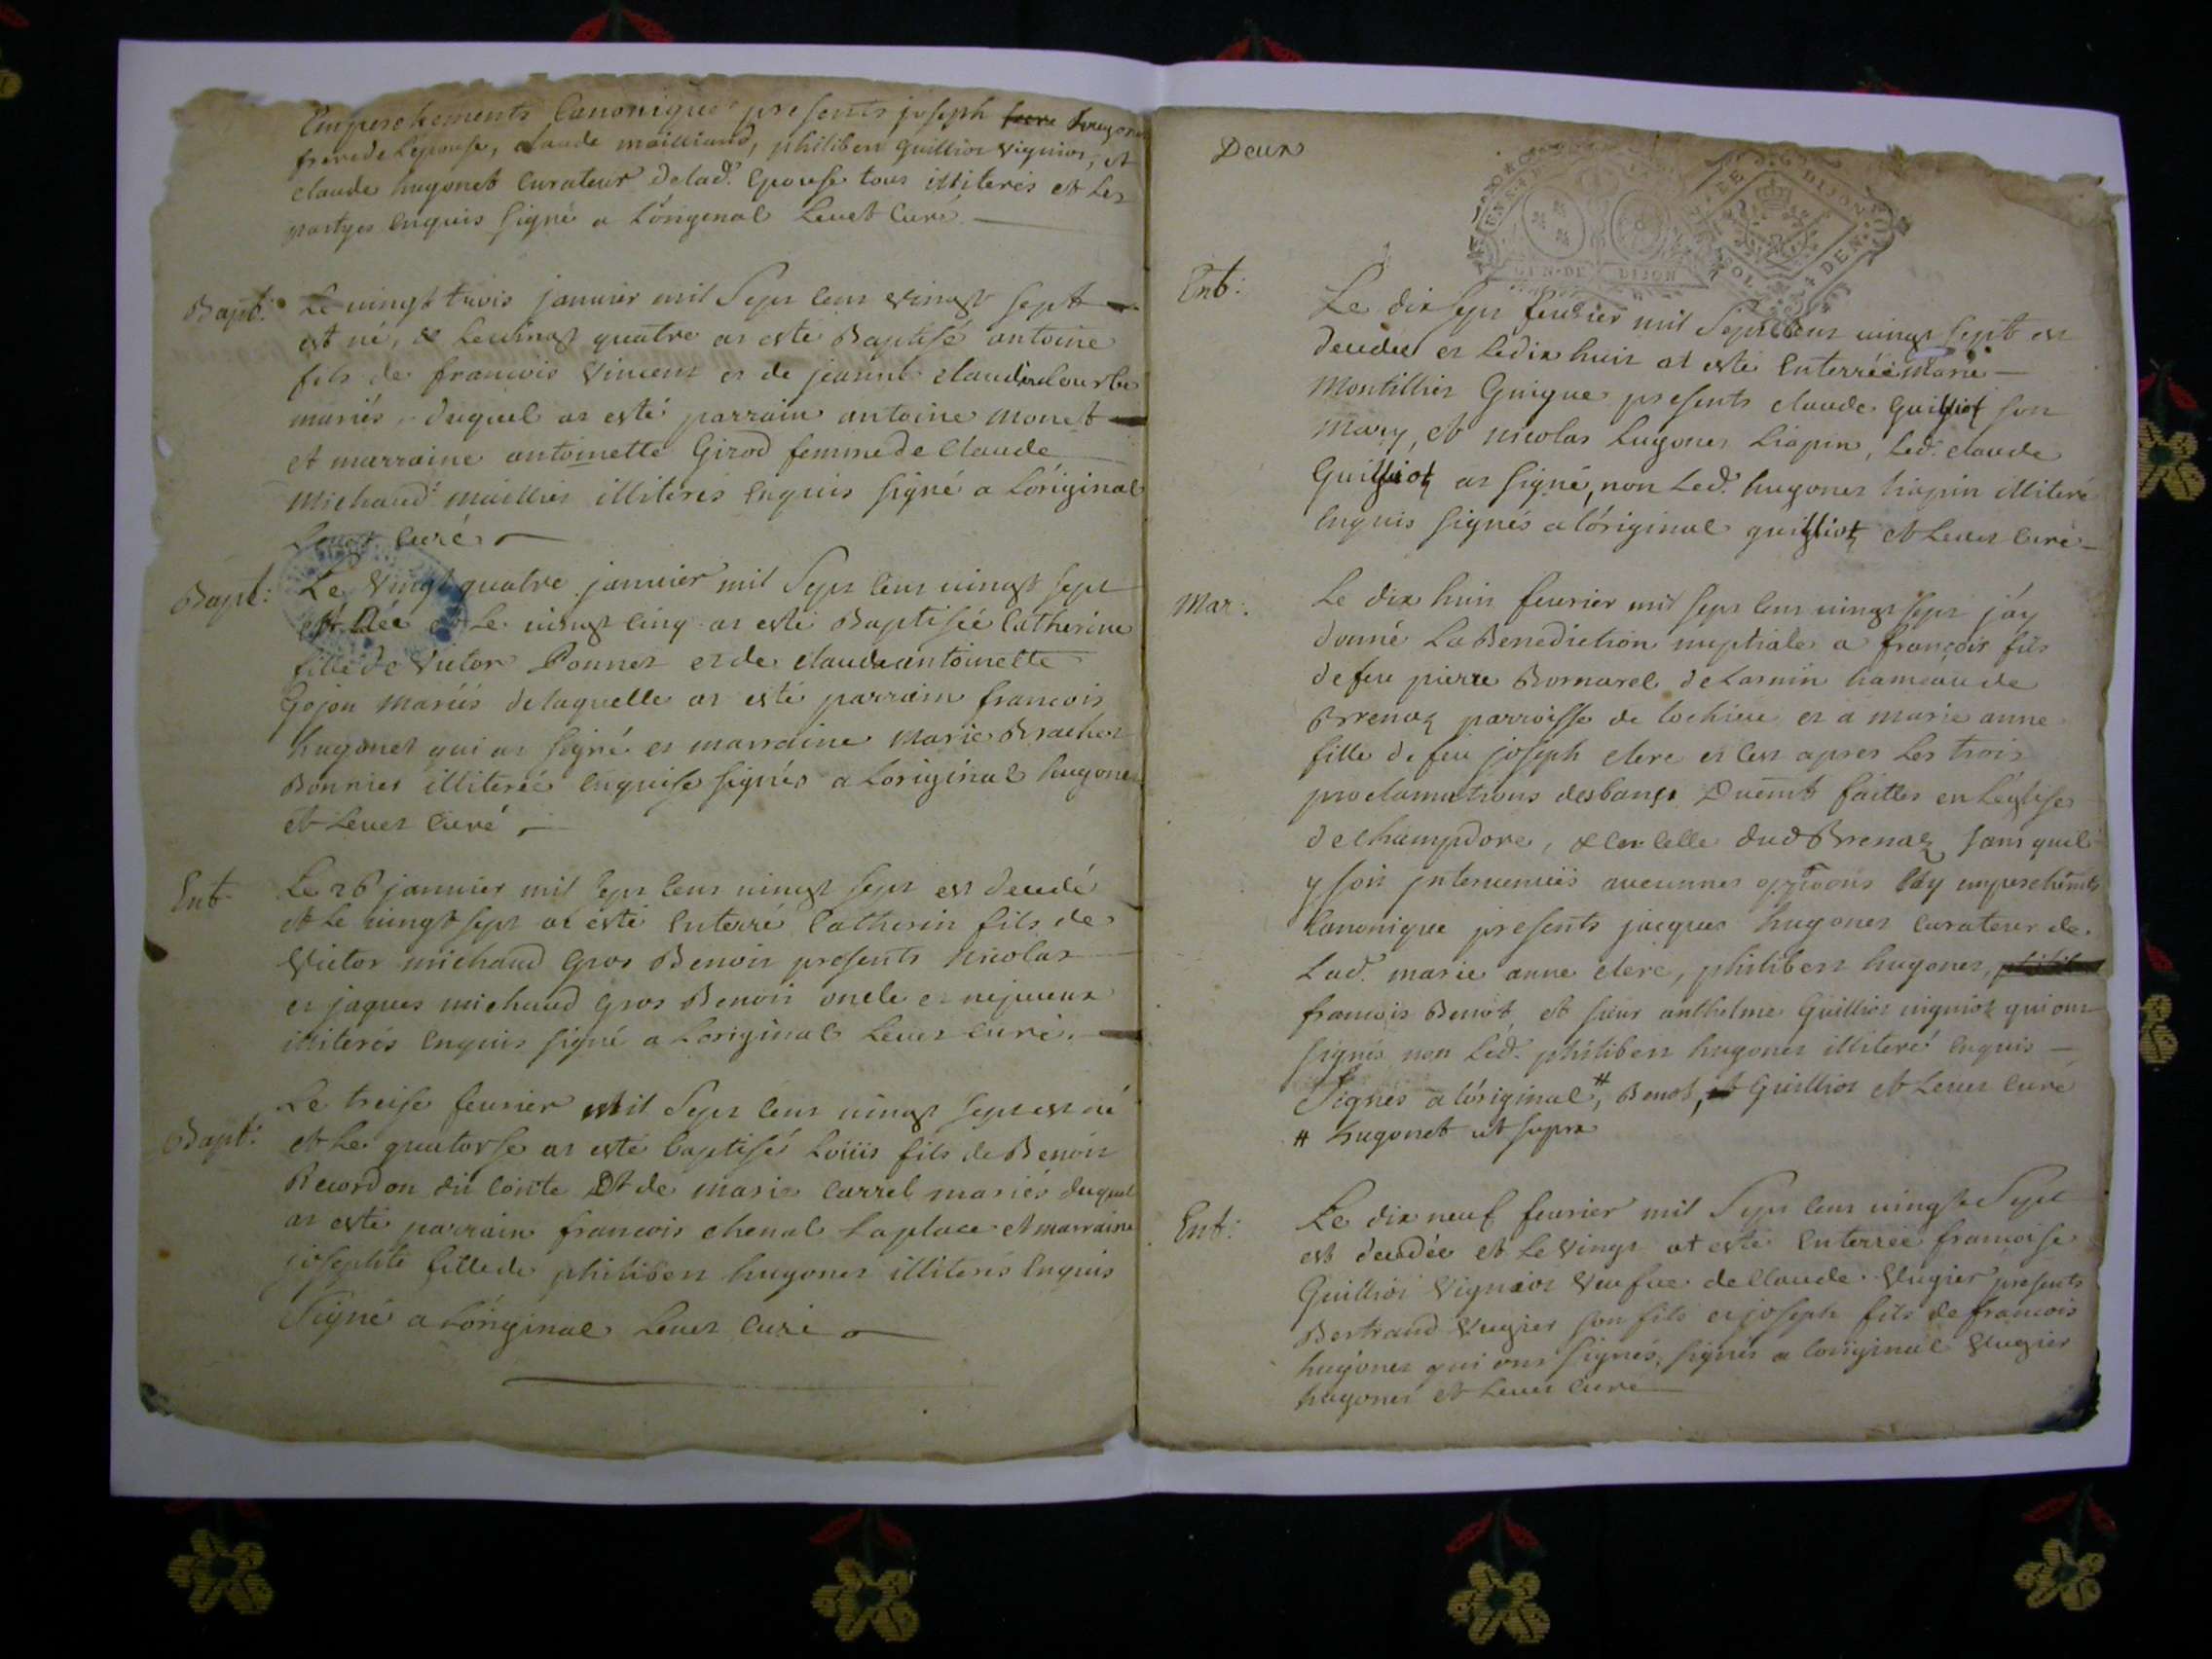 Empeschements Canonique presents joseph hugonet
frere de Lépouse, claude mailliand, philibert guilliot vigniot, et
claude hugonet Curateur de lad. Epouse tous illiterés et Les
partyes Enquis signé a Lóriginal Levet Curé.
Bapt: Le vingt trois januier mil Sept Cent vingt sept
est né, & Le vingt quatre at esté Baptisé antoine
fils de francois Vincent et de jeanne claudine
mariés, duquel at esté parrain antoine monet
et marraine antoinette Girod femme de Claude
Michaud maillier illiterés Enquis signé a Lóriginal
Levet Curé
Bapt: Le Vingt quatre januier mil Sept Cent vingt sept
est Née et Le vingt Cinq at esté Baptisée Catherine
fille de Victor Ponnet et de claude antoinette
Gojon mariés de laquelle at esté parrain francois
hugonet qui at signé et marraine Marie Brachet
Bonnier illiterée Enquise signés a Loriginal hugonet
et Levet Curé
Ent. Le 26 januier mil sept Cent vingt sept est decedé
et Le vingt sept at esté Enterré Catherin fils de
Victor michaud Gros Benoit presents Nicolas
et jaques michaud Gros Benoit oncle et nepueux
illiterés Enquis signé a Loriginal Levet Curé.
Bapt: Le treise feurier mil Sept Cent vingt sept est né
et Le quatorse at esté baptisé Loüis fils de Benoit
Recordon du Conte Et de Marie Carrel mariés duquel
at esté parrain francois chenal Laplace et marraine
josephte fille de philibert hugonet illiterés Enquis
Signé a Lóriginal Levet Curé
Deux
GEN·DE DIJON
DIJON
Ent: Le dix sept feurier mil Sept Cent vingt sept est
decedée et Le dix huit at esté Enterrée Marie
Montillier Guigue presents claude Guilliot son
Mary, et nicolas hugonet Liapin, Led. claude
Guilliot at signé, non Led. hugonet liapin illiteré
Enquis signés a lóriginal guilliot et Levet Curé
Mar: Le dix huit feurier mil sept Cent vingt sept j'ay
donné La Benediction nuptiale a françois fils
de feu pierre Bornarel de Larnin hameau de
Brenaz parroisse de lochieu et a marie anne
fille de feu joseph clerc et Cest apres Les trois
proclamations des bancs Duemt faittes en Léglise
de champdore, & en Celle dud Brenaz sans quil
y soit interuenües aucunnes oppõons ny empeschemts
Canonique presents jacques hugonet Curateur de
Lad. marie anne clerc, philibert hugonet,
francois Benot, et sieur anthelme Guilliot vigniot qui ont
signés non Léd. philibert hugonet illiteré Enquis
Signés a lóriginal, # Benot, Guilliot et Levet Curé
# hugonet ut supra
Ent: Le dix neuf feurier mil Sept Cent vingt Sept
est decedée et Le Vingt at esté Enterrée francoise
Guilliot Vigniot Veufue de Claude Vugier presents
Bertrand Vugier son fils et joseph fils de francois
hugonet qui ont signés, signés a Loriginal Vugier
hugonet et Levet Curé